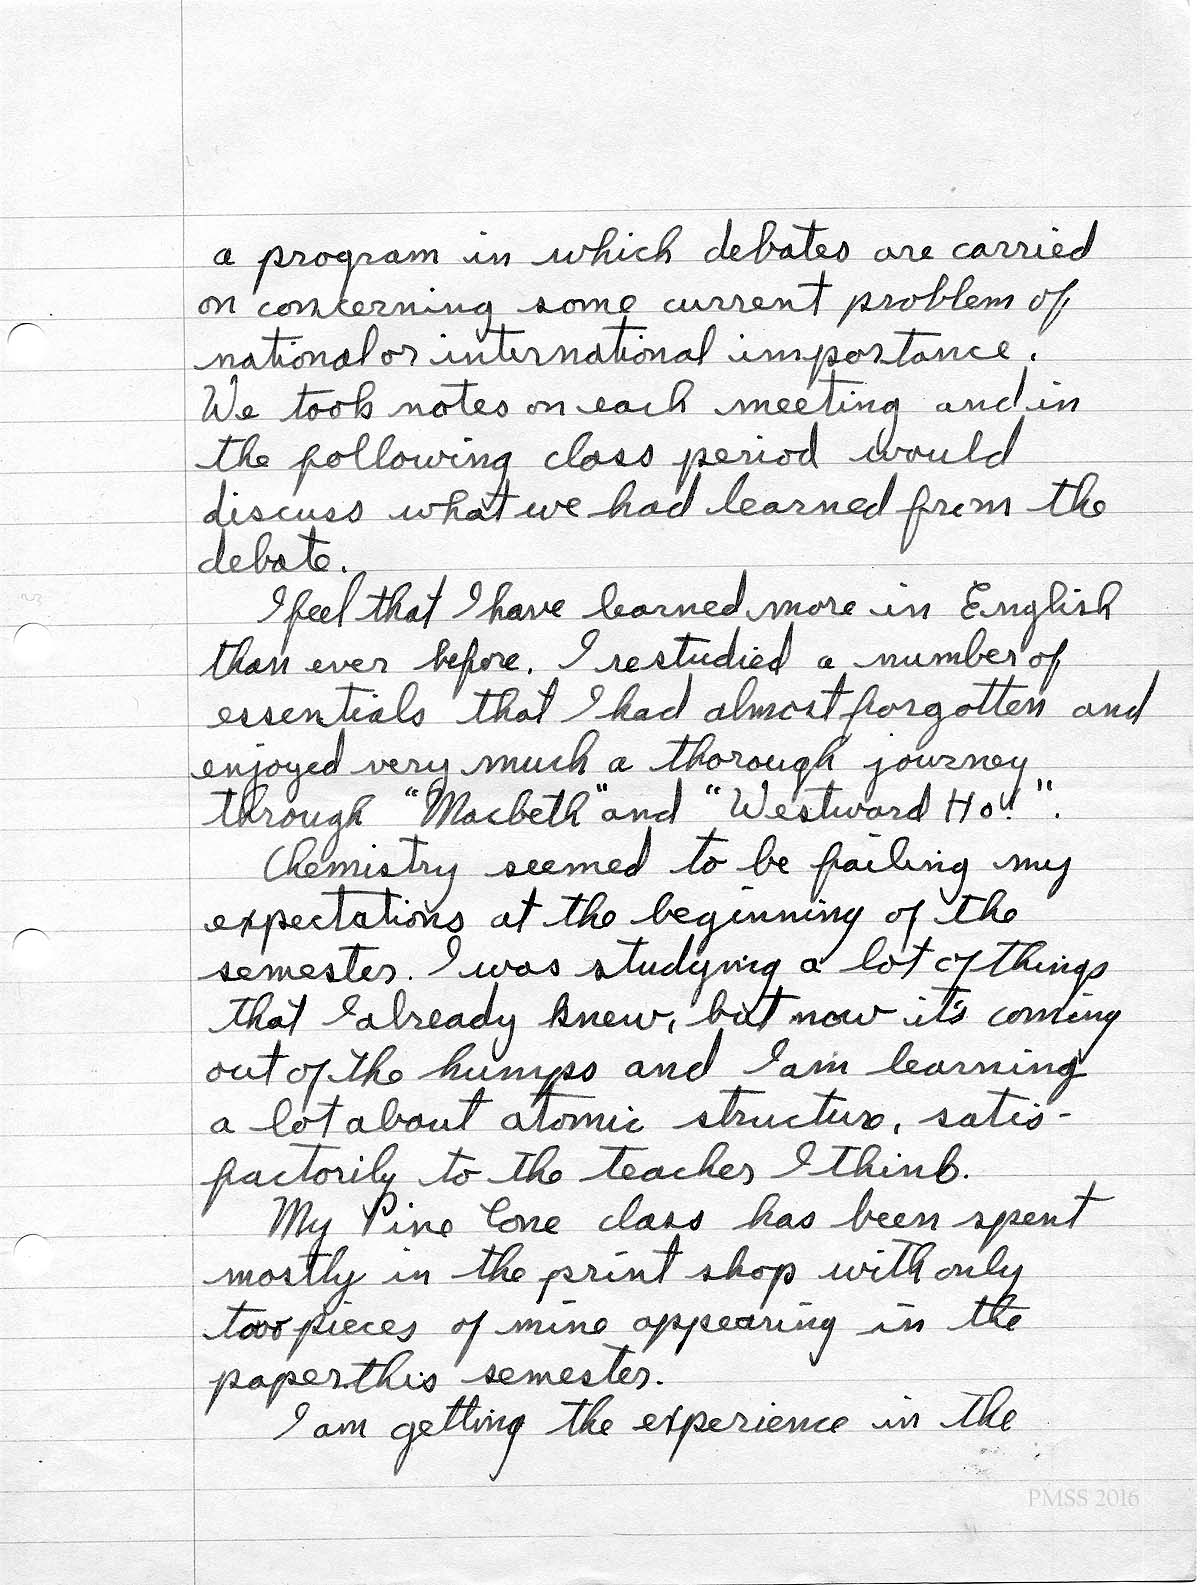 a program in which debates are carried
on concerning some current problem of
national or international importance.
We took notes on each meeting and in
the following class period would
discuss what we had learned from the
debate.
I feel that I have learned more in English
than ever before. I restudied a number of
essentials that I had almost forgotten and
enjoyed very much a thorough journey
through "Macbeth" and "Westward Ho!".
Chemistry seemed to be failing my
expectations at the beginning of the
semester. I was studying a lot of things
that I already knew, but now it's coming
out of the humps and I am learning
a lot about atomic structure, satis-
factorily to the teacher I think.
My Pine Cone class has been spent
mostly in the print shop with only
two pieces of mine appearing in the
paper this semester.
I am getting the experience in the
PMSS 2016